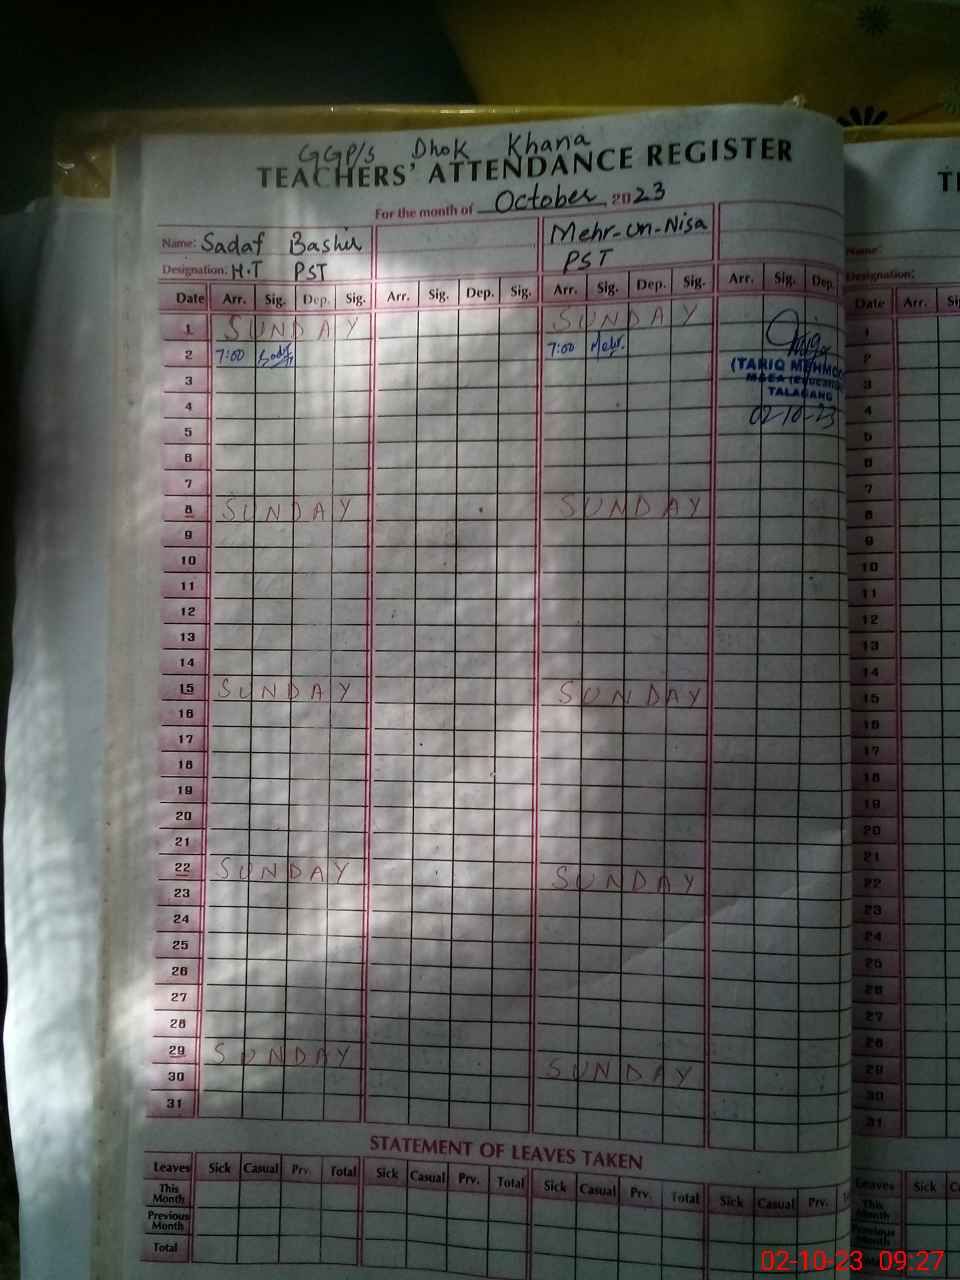 GGP/S Dhok Khana
TEACHERS' ATTENDANCE REGISTER
For the month of October 2023
Name: Sadaf Bashir Mehr-un-Nisa
Designation: H.T PST PST
Date Arr. Sig. Dep. Sig. Arr. Sig. Dep. Sig. Arr. Sig. Dep. Sig. Arr. Sig. Dep.
1 SUNDAY SUNDAY
2 7:00 Sadaf 7:00 Mehr.
3 (TARIQ
4 TALAGANG
5 02-10-23
6
7
8 SUNDAY SUNDAY
9
10
11
12
13
14
15 SUNDAY SUNDAY
16
17
18
19
20
21
22 SUNDAY SUNDAY
23
24
25
26
27
28
29 SUNDAY SUNDAY
30
31
STATEMENT OF LEAVES TAKEN
Leaves Sick Casual Prv. Total Sick Casual Prv. Total Sick Casual Prv. Total Sick Casual Prv.
This Month
Previous Month
Total
Name:
Designation:
Date Arr.
1
2
3
4
5
6
7
8
9
10
11
12
13
14
15
16
17
18
19
20
21
22
23
24
25
26
27
28
29
30
31
Leaves Sick
This Month
Previous Month
Total
02-10-23 09:27